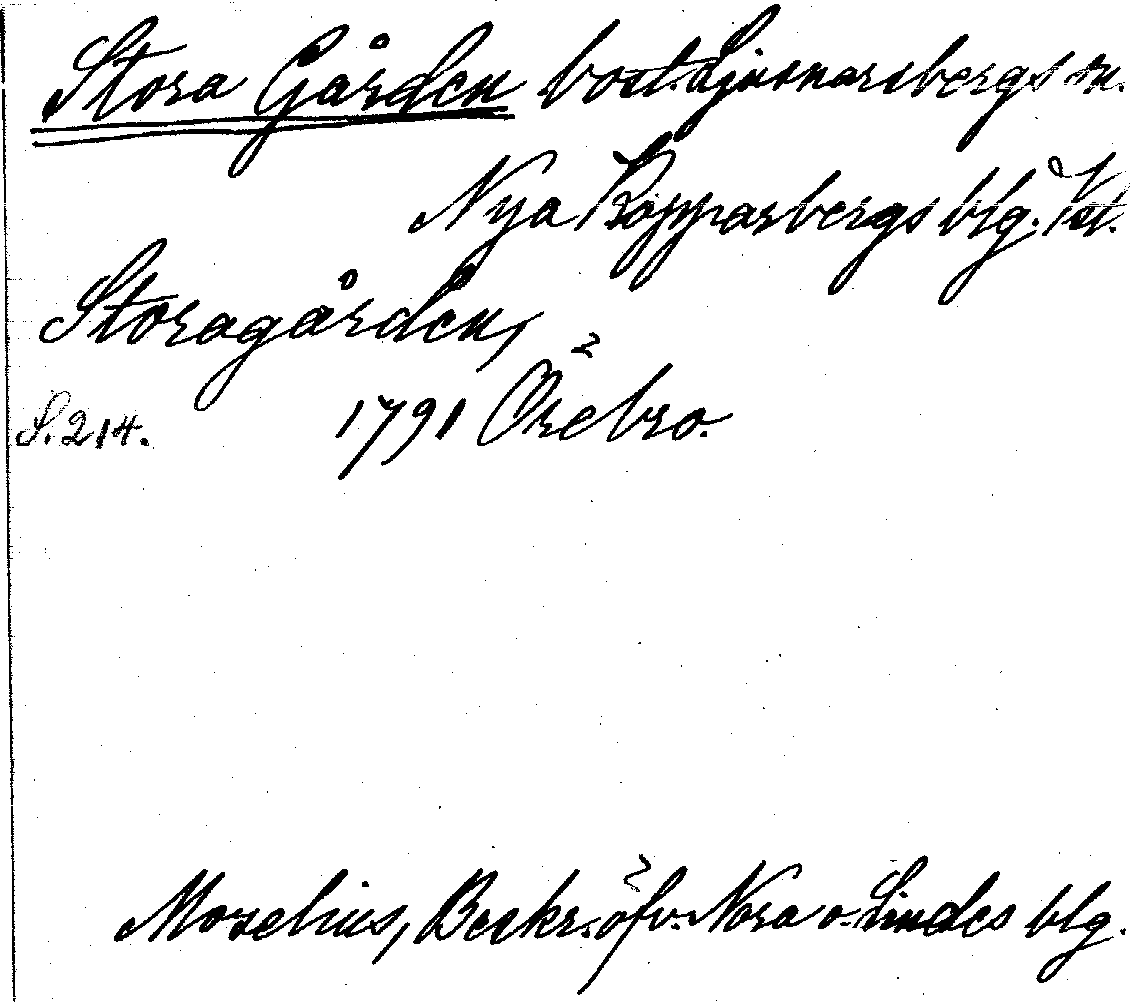 Stora Gården bost. Ljusnarsbergs sn.
Nya Kopparbergs blg. Vstl.
Storagården,
S. 214. 1791 Örebro.
Mozelius, Beskr. öfv. Nora o. Lindes blg.